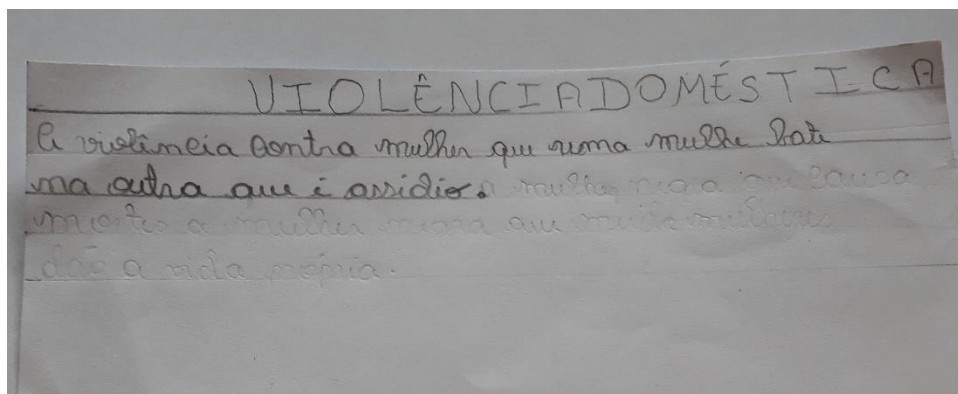 VIOLÊNCIA DOMÉSTICA
A violência contra mulher que uma mulhe bate
na outra que é assédio. a mulher negra que causa
mortes a mulher negra que muita mulheres
dão a vida própria.